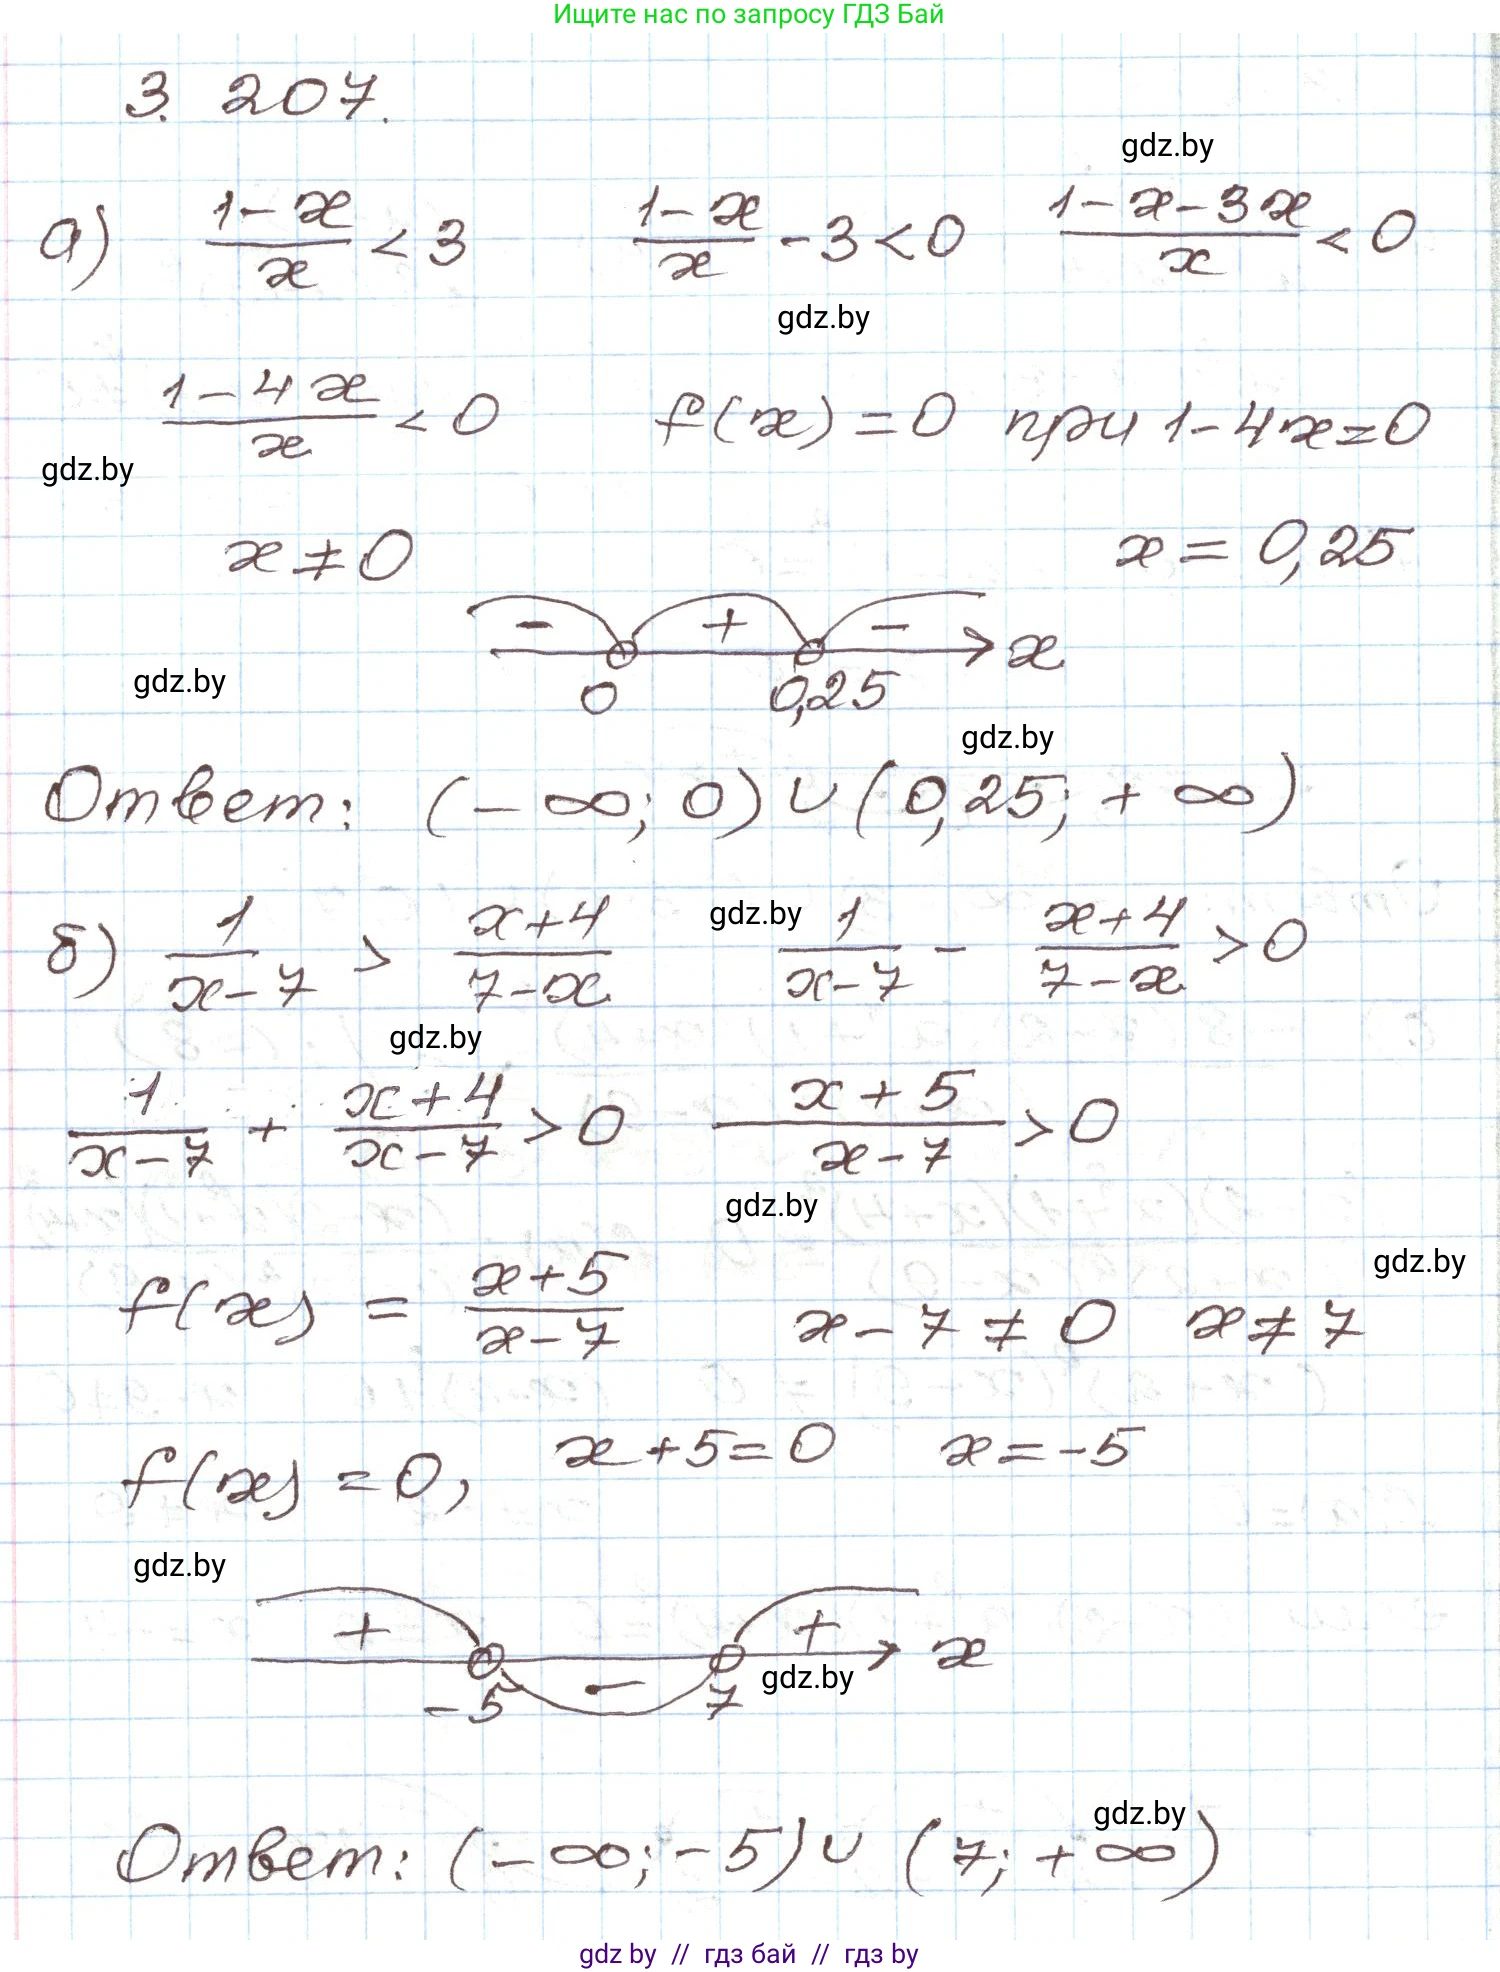 Ищите нас по запросу ГДЗ Бай
3. 207.
gdz.by
а) (1-x)/x < 3   (1-x)/x - 3 < 0   (1-x-3x)/x < 0
gdz.by
(1-4x)/x < 0   f(x) = 0 при 1-4x=0
gdz.by
x ≠ 0   x = 0,25
- + - x
gdz.by
0 0,25
gdz.by
Ответ: (-∞; 0) ∪ (0,25; +∞)
б) 1/(x-7) > (x+4)/(7-x)   gdz.by   1/(x-7) - (x+4)/(7-x) > 0
gdz.by
1/(x-7) + (x+4)/(x-7) > 0   (x+5)/(x-7) > 0
gdz.by
gdz.by
f(x) = (x+5)/(x-7)   x-7 ≠ 0   x ≠ 7
f(x) = 0,   x+5=0   x=-5
gdz.by
+ - + x
gdz.by
-5 7
gdz.by
Ответ: (-∞; -5) ∪ (7; +∞)
gdz by // гдз бай // гдз by